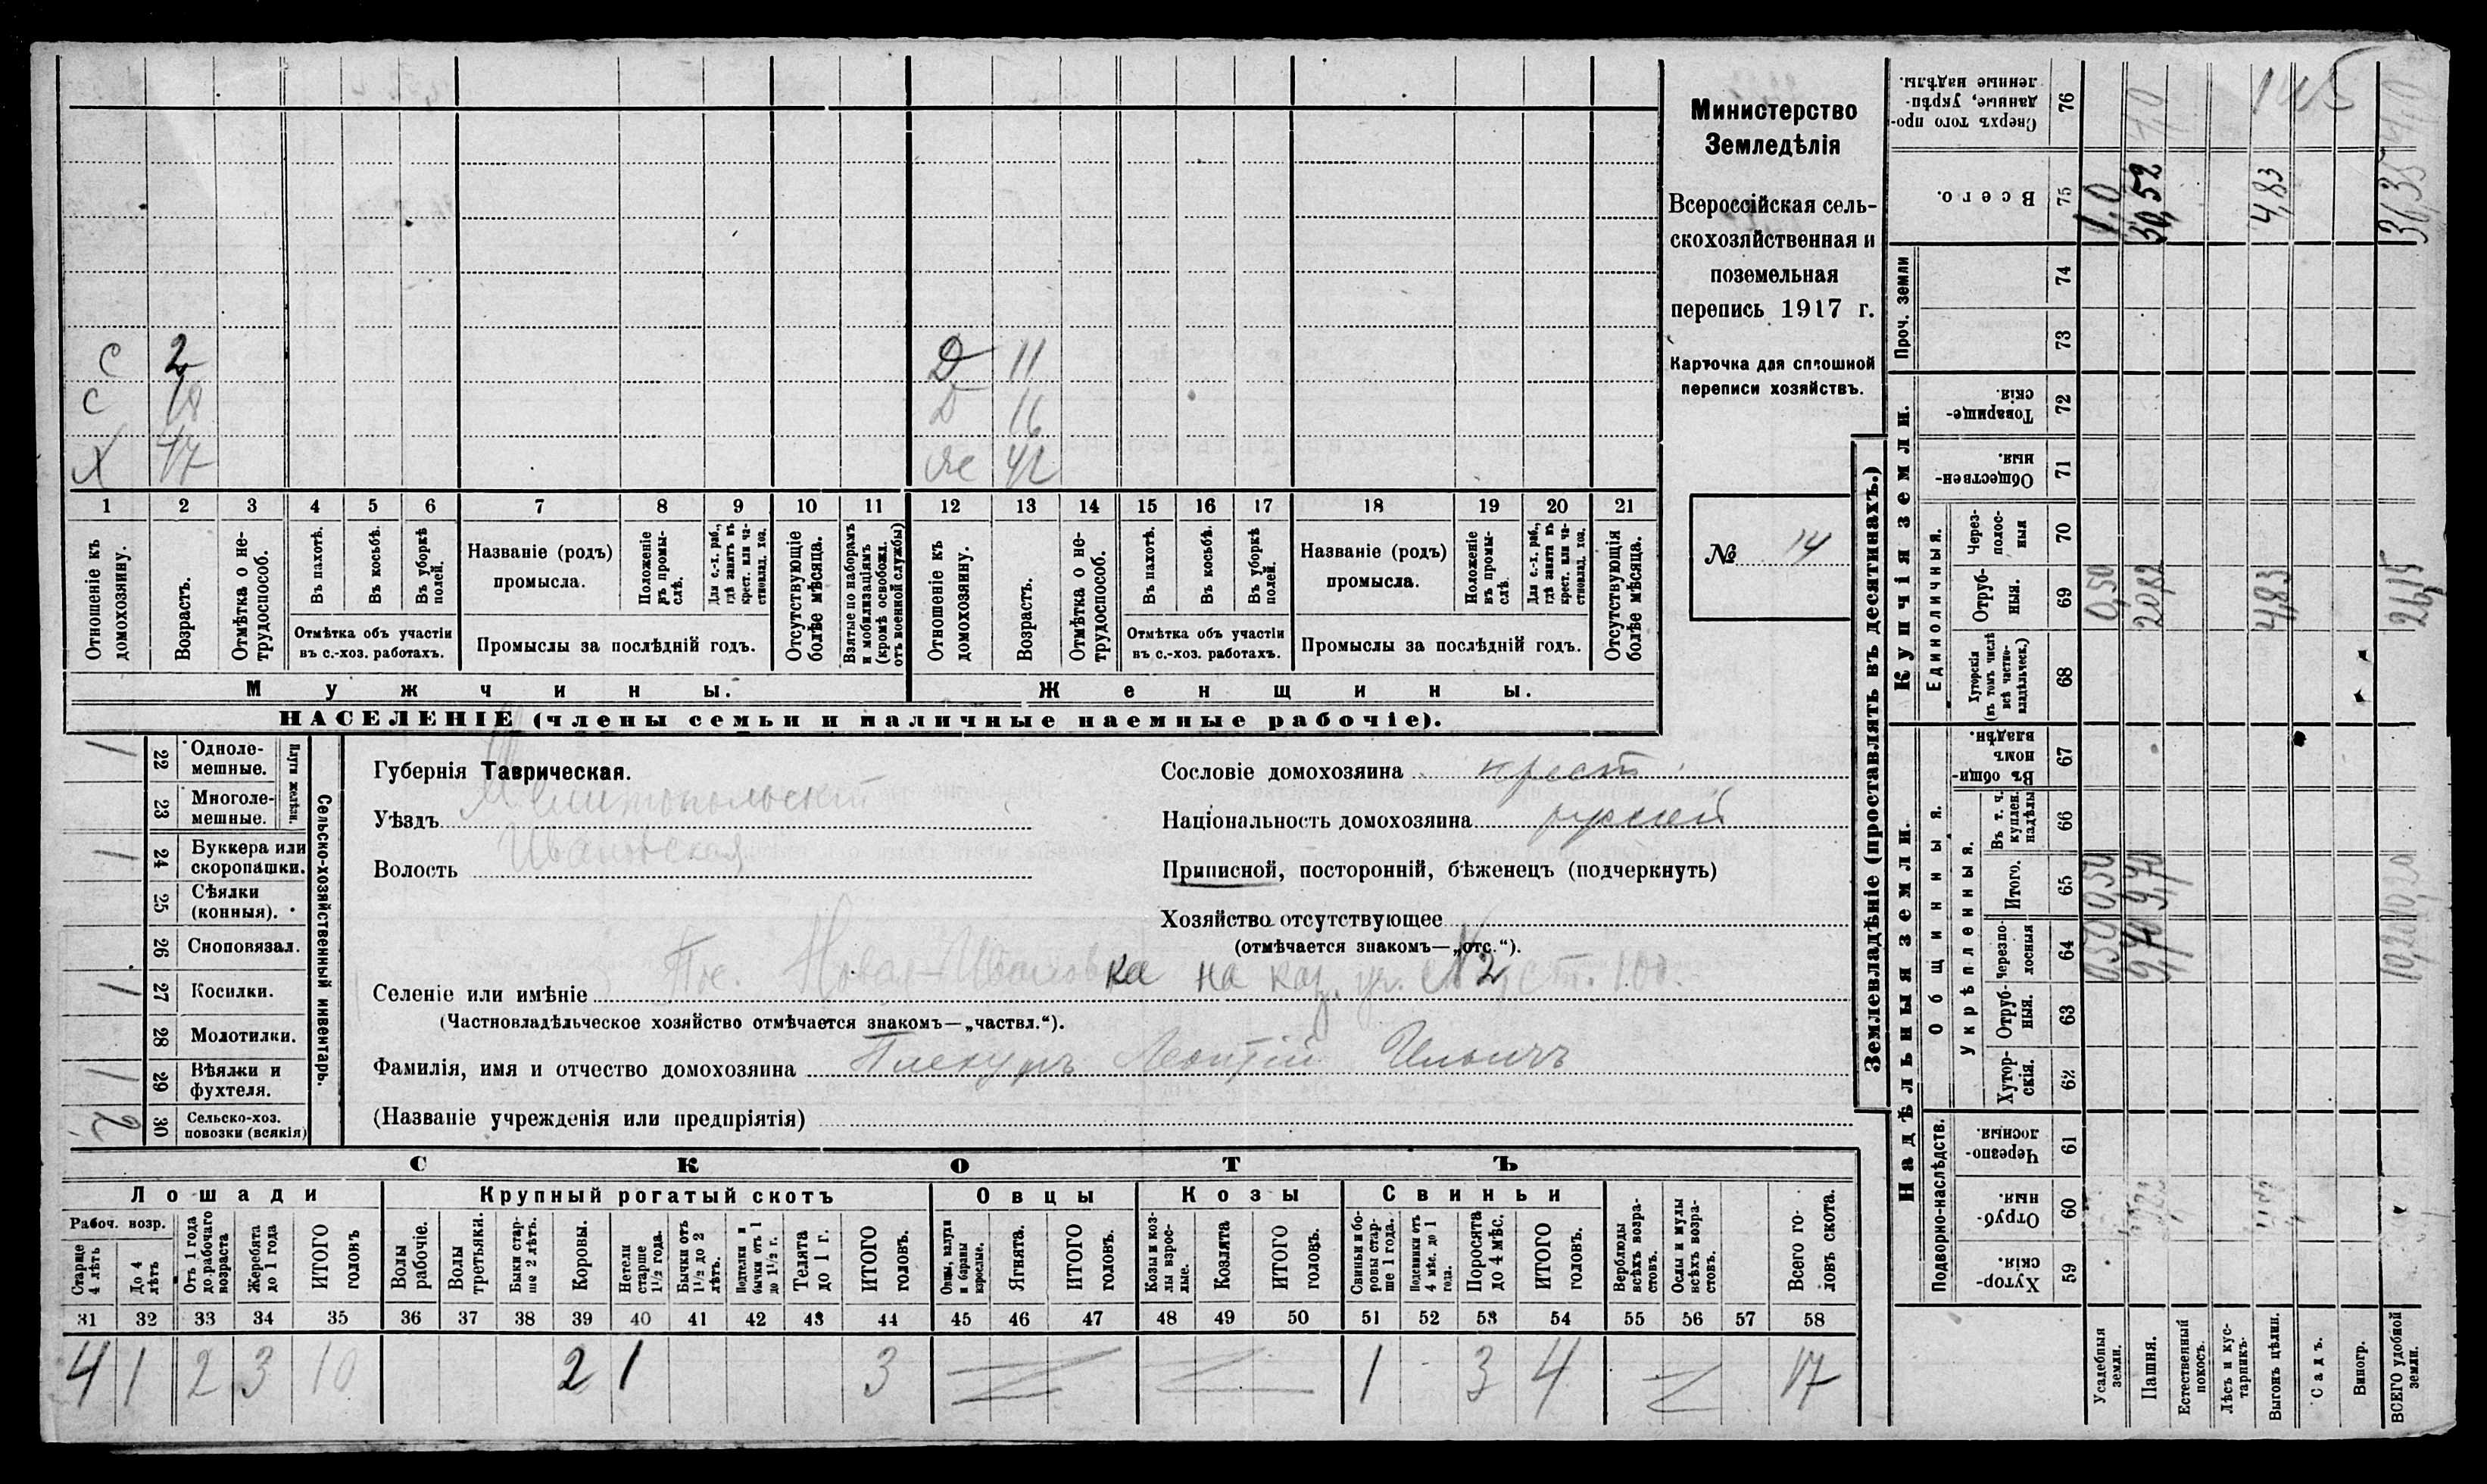 Министерство
Земледѣлія
Всероссійская сель-
скохозяйственная и
поземельная
перепись 1917 г.
Карточка для сплошной
переписи хозяйствъ.
№ 14
С 2 Д 11
С 18 Д 16
Х 47 Же 42
1 2 3 4 5 6 7 8 9 10 11 12 13 14 15 16 17 18 19 20 21
Отношеніе къ домохозяину.
Возрастъ.
Отмѣтка о не-трудоспособ.
Въ пахотѣ.
Въ косьбѣ.
Въ уборкѣ полей.
Отмѣтка объ участіи
въ с.-хоз. работахъ.
Названіе (родъ)
промысла.
Положеніе въ промы-слѣ.
Для с.-х. раб., гдѣ занятъ въ крест. или ча-стновлад. хоз.
Промыслы за послѣдній годъ.
Отсутствующіе болѣе мѣсяца.
Взятые по наборамъ и мобилизаціямъ (кромѣ освобожд. отъ военной службы)
Отношеніе къ домохозяину.
Возрастъ.
Отмѣтка о не-трудоспособ.
Въ пахотѣ.
Въ косьбѣ.
Въ уборкѣ полей.
Отмѣтка объ участіи
въ с.-хоз. работахъ.
Названіе (родъ)
промысла.
Положеніе въ промы-слѣ.
Для с.-х. раб., гдѣ занята въ крест. или ча-стновлад. хоз.
Промыслы за послѣдній годъ.
Отсутствующія болѣе мѣсяца.
Мужчины. Женщины.
НАСЕЛЕНІЕ (члены семьи и наличные наемные рабочіе).
Сельско-хозяйственный инвентарь.
Плуги желѣзн.
1 22 Одноле-мешные.
23 Многоле-мешные.
1 24 Буккера или скоропашки.
25 Сѣялки (конныя).
26 Сноповязал.
1 27 Косилки.
28 Молотилки.
1 29 Вѣялки и фухтеля.
2 30 Сельско-хоз. повозки (всякія)
Губернія Таврическая.
Уѣздъ Мелитопольскій
Волость Ивановская
Сословіе домохозяина крест.
Національность домохозяина русскій
Приписной, посторонній, бѣженецъ (подчеркнуть)
Хозяйство отсутствующее
(отмѣчается знакомъ—„отс.“).
Селеніе или имѣніе Пос. Новая-Ивановка на каз. уч. №2 ст. 100.
(Частновладѣльческое хозяйство отмѣчается знакомъ—„частвл.“).
Фамилія, имя и отчество домохозяина Леонтій Ильичъ
(Названіе учрежденія или предпріятія)
СКОТЪ
Лошади Крупный рогатый скотъ Овцы Козы Свиньи
Рабоч. возр.
Старше 4 лѣтъ
До 4 лѣтъ
Отъ 1 года до рабочаго возраста
Жеребята до 1 года
ИТОГО головъ
Волы рабочіе.
Волы третьяки.
Быки стар-ше 2 лѣтъ.
Коровы.
Нетели старше 1½ года.
Бычки отъ 1½ до 2 лѣтъ.
Подтелки и бычки отъ 1 до 1½ г.
Телята до 1 г.
ИТОГО головъ.
Овцы, валухи и бараны взрослые.
Ягнята.
ИТОГО головъ.
Козы и коз-лы взрос-лые.
Козлята
ИТОГО головъ.
Свиньи и бо-ровы стар-ше 1 года.
Подсвинки отъ 4 мѣс. до 1 года.
Поросята до 4 мѣс.
ИТОГО головъ.
Верблюды всѣхъ возра-стовъ.
Ослы и мулы всѣхъ возра-стовъ.
Всего го-ловъ скота.
31 32 33 34 35 36 37 38 39 40 41 42 43 44 45 46 47 48 49 50 51 52 53 54 55 56 57 58
4 1 2 3 10 2 1 3 1 3 4 17
Землевладѣніе (проставлять въ десятинахъ.)
Надѣльныя земли.
Купчія земли.
Проч. земли
Подворно-наслѣдств.
Общинныя.
Укрѣпленныя.
Единоличныя.
76 Сверхъ того про-данные, укрѣп-ленные надѣлы.
75 Всего. 1,0 30,52 4,83 36,35
74
73
72 Товарище-скія.
71 Обществен-ныя.
70 Через-полос-ныя
69 Отруб-ныя. 0,50 20,82 4,83 26,15
68 Хуторскія (въ томъ числѣ всѣ частно-владѣльческ.)
67 Въ общин-номъ владѣн.
66 Въ т. ч. куплен. надѣлы
65 Итого. 0,50 9,70 10,20
64 Черезпо-лосныя 0,50 9,70 10,20
63 Отруб-ныя.
62 Хутор-скія.
61 Черезпо-лосныя.
60 Отруб-ныя.
59 Хутор-скія.
Усадебныя земли.
Пашня.
Естественный покосъ.
Лѣсъ и кус-тарникъ.
Выгонъ цѣлин.
Садъ.
Виногр.
ВСЕГО удобной земли.